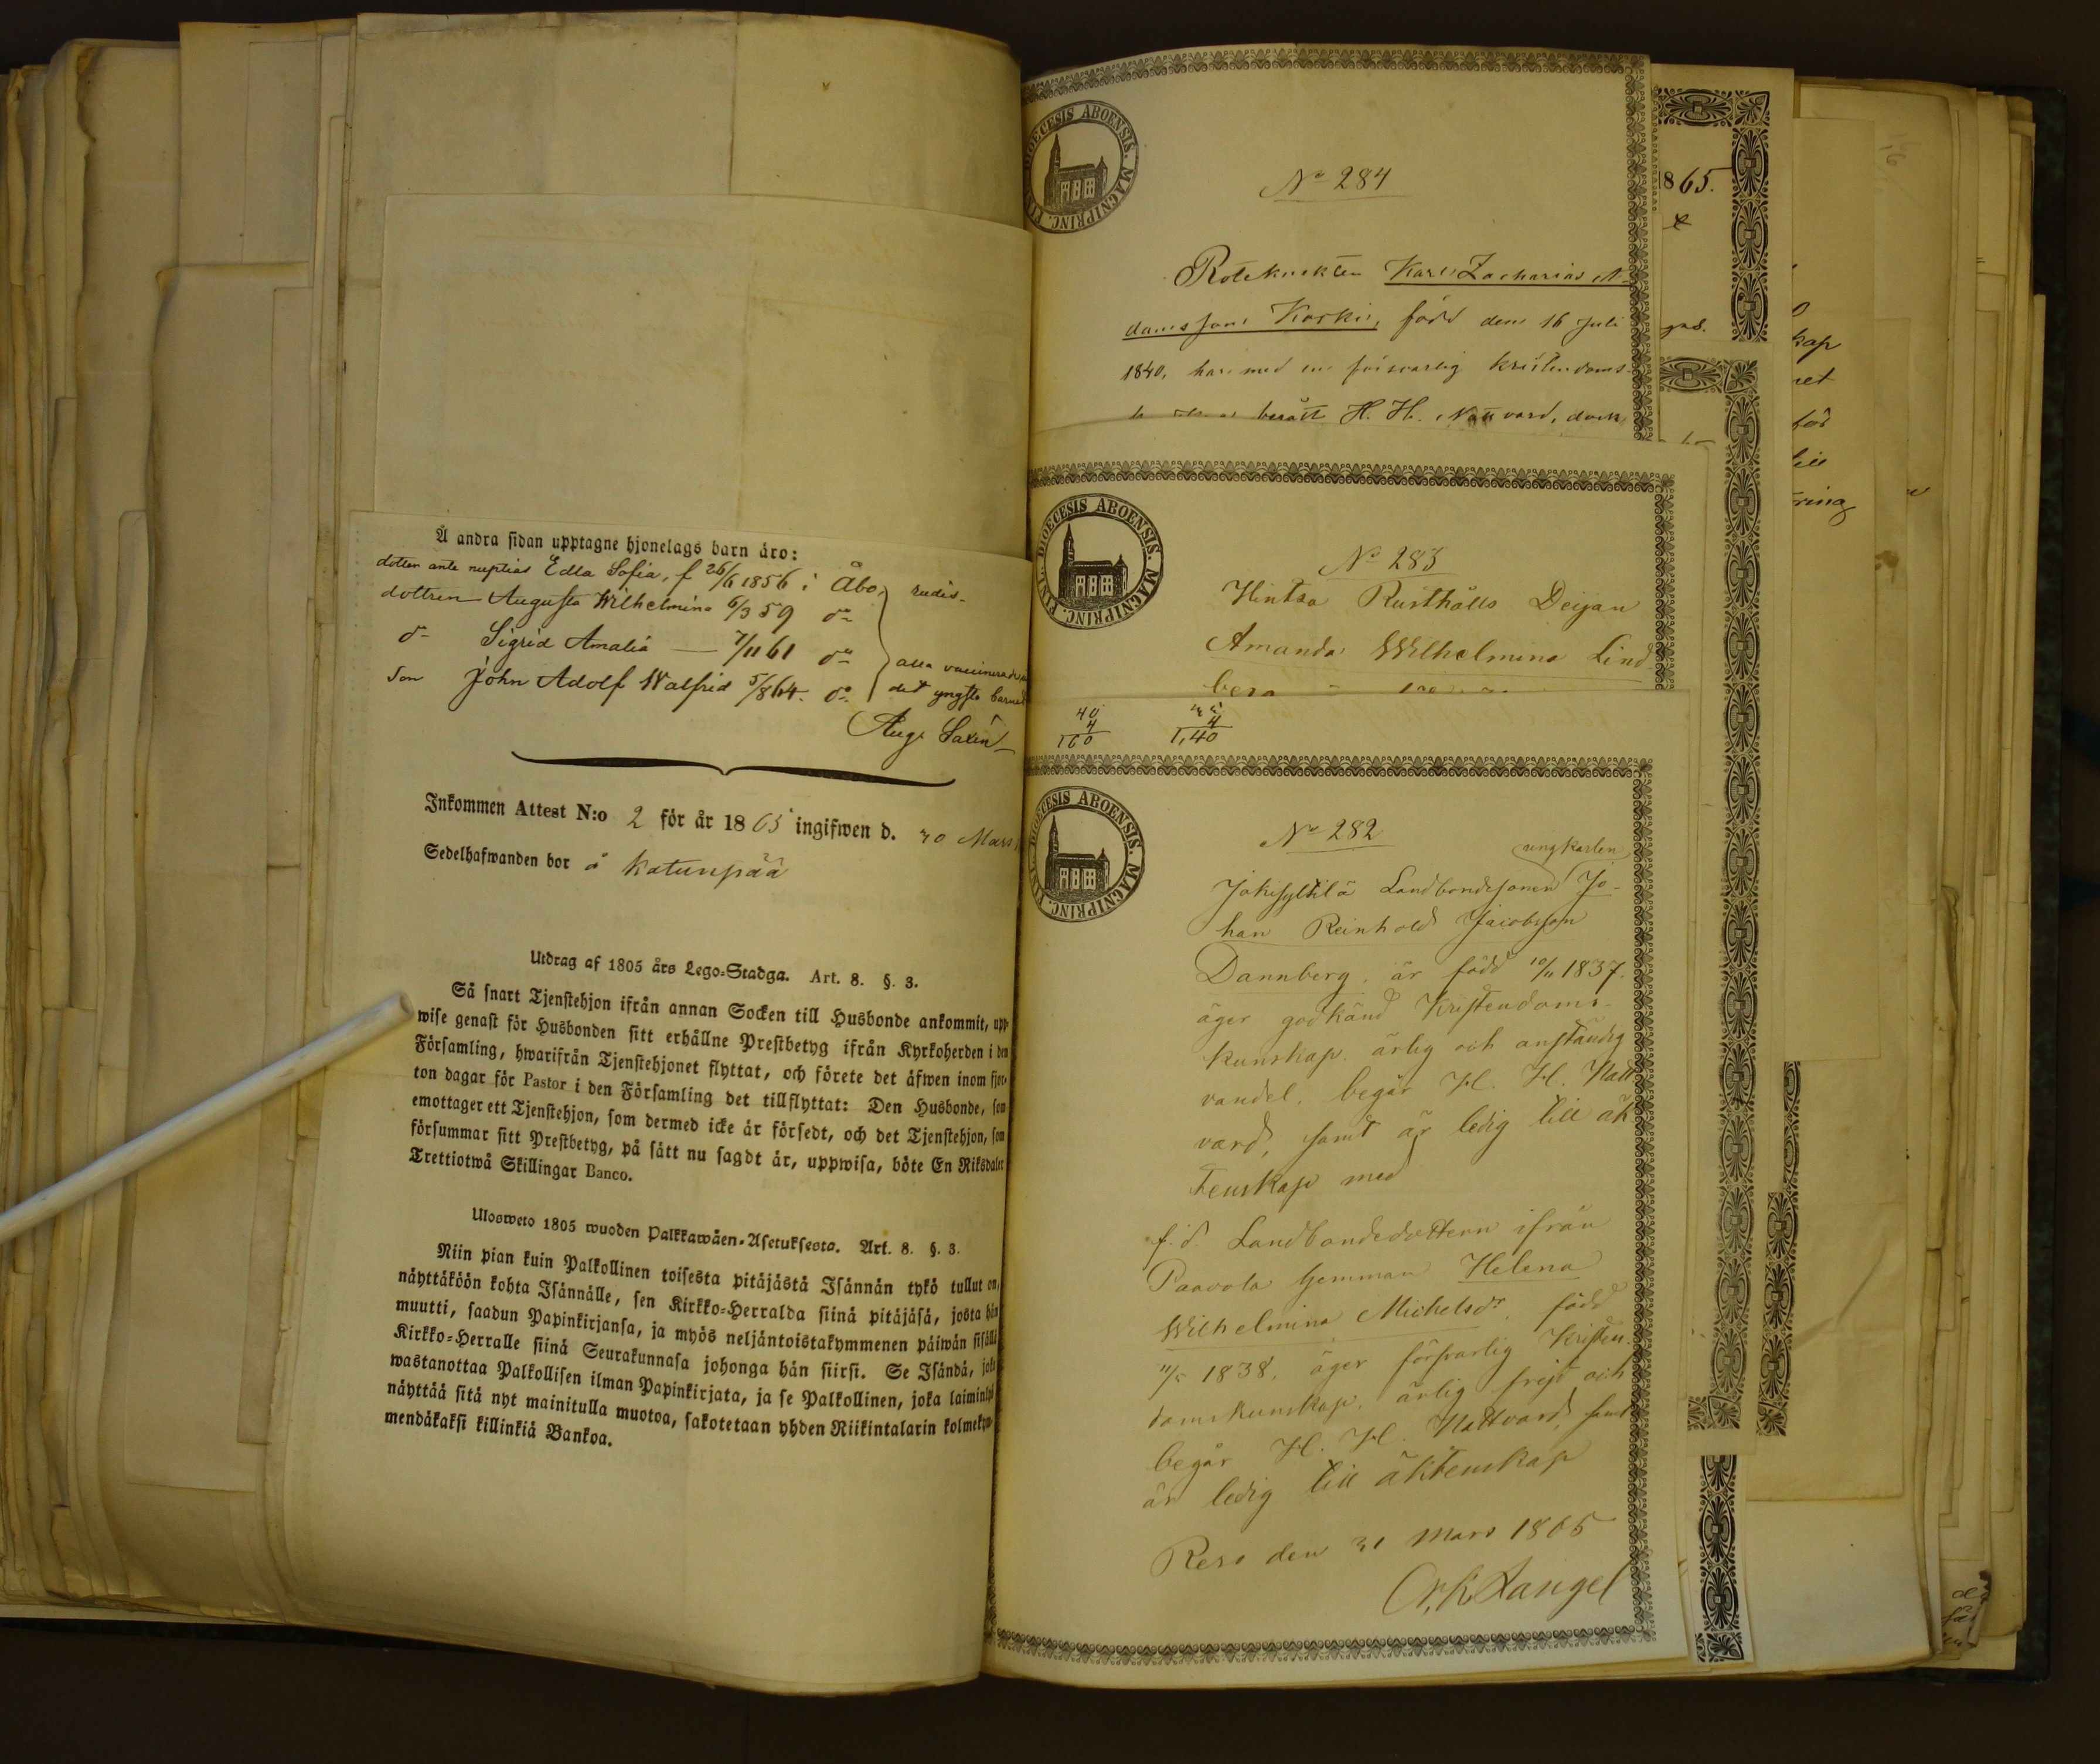 Å andra sidan upptagne hjonelags barn äro:
dotter ante nuptias Edla Sofia, f 26/6 1856 i Åbo, rudis-
dottren Augusta Wilhelmina 6/3 59 do
do Sigrid Amalia — 7/11 61 do
alla vaccinerade
Son John Adolf Walfrid 5/8 64. do
det yngsta barnet
Aug. Saxén
Inkommen Attest N:o 2 för år 1865 ingifwen d. 30 Mars
Sedelhafwanden bor å Katunpää
Utdrag af 1805 års Lego-Stadga. Art. 8. §. 3.
Så snart Tjenstehjon ifrån annan Socken till Husbonde ankommit, upp-
wise genast för Husbonden sitt erhållne Prestbetyg ifrån Kyrkoherden i den
Församling, hwarifrån Tjenstehjonet flyttat, och förete det äfwen inom fjor-
ton dagar för Pastor i den Församling det tillflyttat: Den Husbonde, som
emottager ett Tjenstehjon, som dermed icke är försedt, och det Tjenstehjon, som
försummar sitt Prestbetyg, på sätt nu sagdt är, uppwisa, böte En Riksdaler
Trettiotwå Skillingar Banco.
Ulosweto 1805 wuoden Palkkawäen-Asetuksesta. Art. 8. §. 3.
Niin pian kuin Palkollinen toisesta pitäjästä Isännän tykö tullut on,
näyttäköön kohta Isännälle, sen Kirkko-Herralda siinä pitäjäsä, josta hän
muutti, saadun Papinkirjansa, ja myös neljäntoistakymmenen päiwän sisällä
Kirkko-Herralle siinä Seurakunnasa johonga hän siirsi. Se Isändä, joka
wastanottaa Palkollisen ilman Papinkirjata, ja se Palkollinen, joka laiminlyö
näyttää sitä nyt mainitulla muotoa, sakotetaan yhden Riikintalarin kolmekym-
mendäkaksi killinkiä Bankoa.
DIOECESIS ABOENSIS. MAGNIPRINC. FINL.
No 284
Roteknekten Karl Zacharias A-
damsson Korki, född den 16 Juli
1840, har med en försvarlig kristendoms-
begått H. H. Nattvard, dock
DIOECESIS ABOENSIS. MAGNIPRINC. FINL.
No 283
Hintsa Rusthålls Deijan
Amanda Wilhelmina Lind
berg
40
4
160
4
1,40
DIOECESIS ABOENSIS. MAGNIPRINC. FINL.
No 282
ungkarlen
Jokisyltilä Landbondesonen Jo-
han Reinhold Jacobsson
Dannberg, är född 10/11 1837.
äger godkänd Kristendoms-
kunskap, ärlig och anständig
vandel, begår H. H. Natt
vard, samt är ledig till äk
tenskap med
f. d. Landbondedottern ifrån
Paavola hemman Helena
Wilhelmina Michelsdr, född
11/5 1838, äger försvarlig Kristen-
domskunskap, ärlig frejd och
begår H. H. Nattvard, samt
är ledig till äktenskap
Reso den 31 Mars 1865
K Zangel
1865.
kap
net
för
till
ring